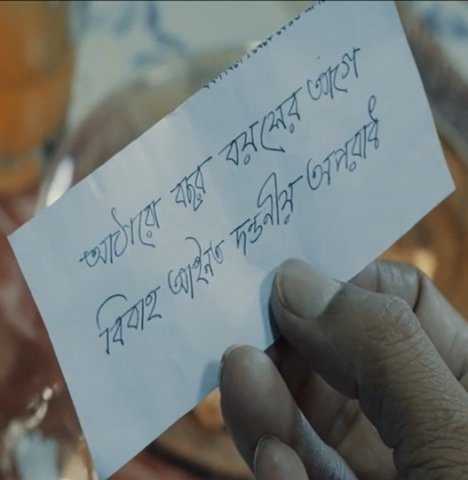 আঠারো বছর বয়সের আগে
বিবাহ আইনত দন্ডনীয় অপরাধ